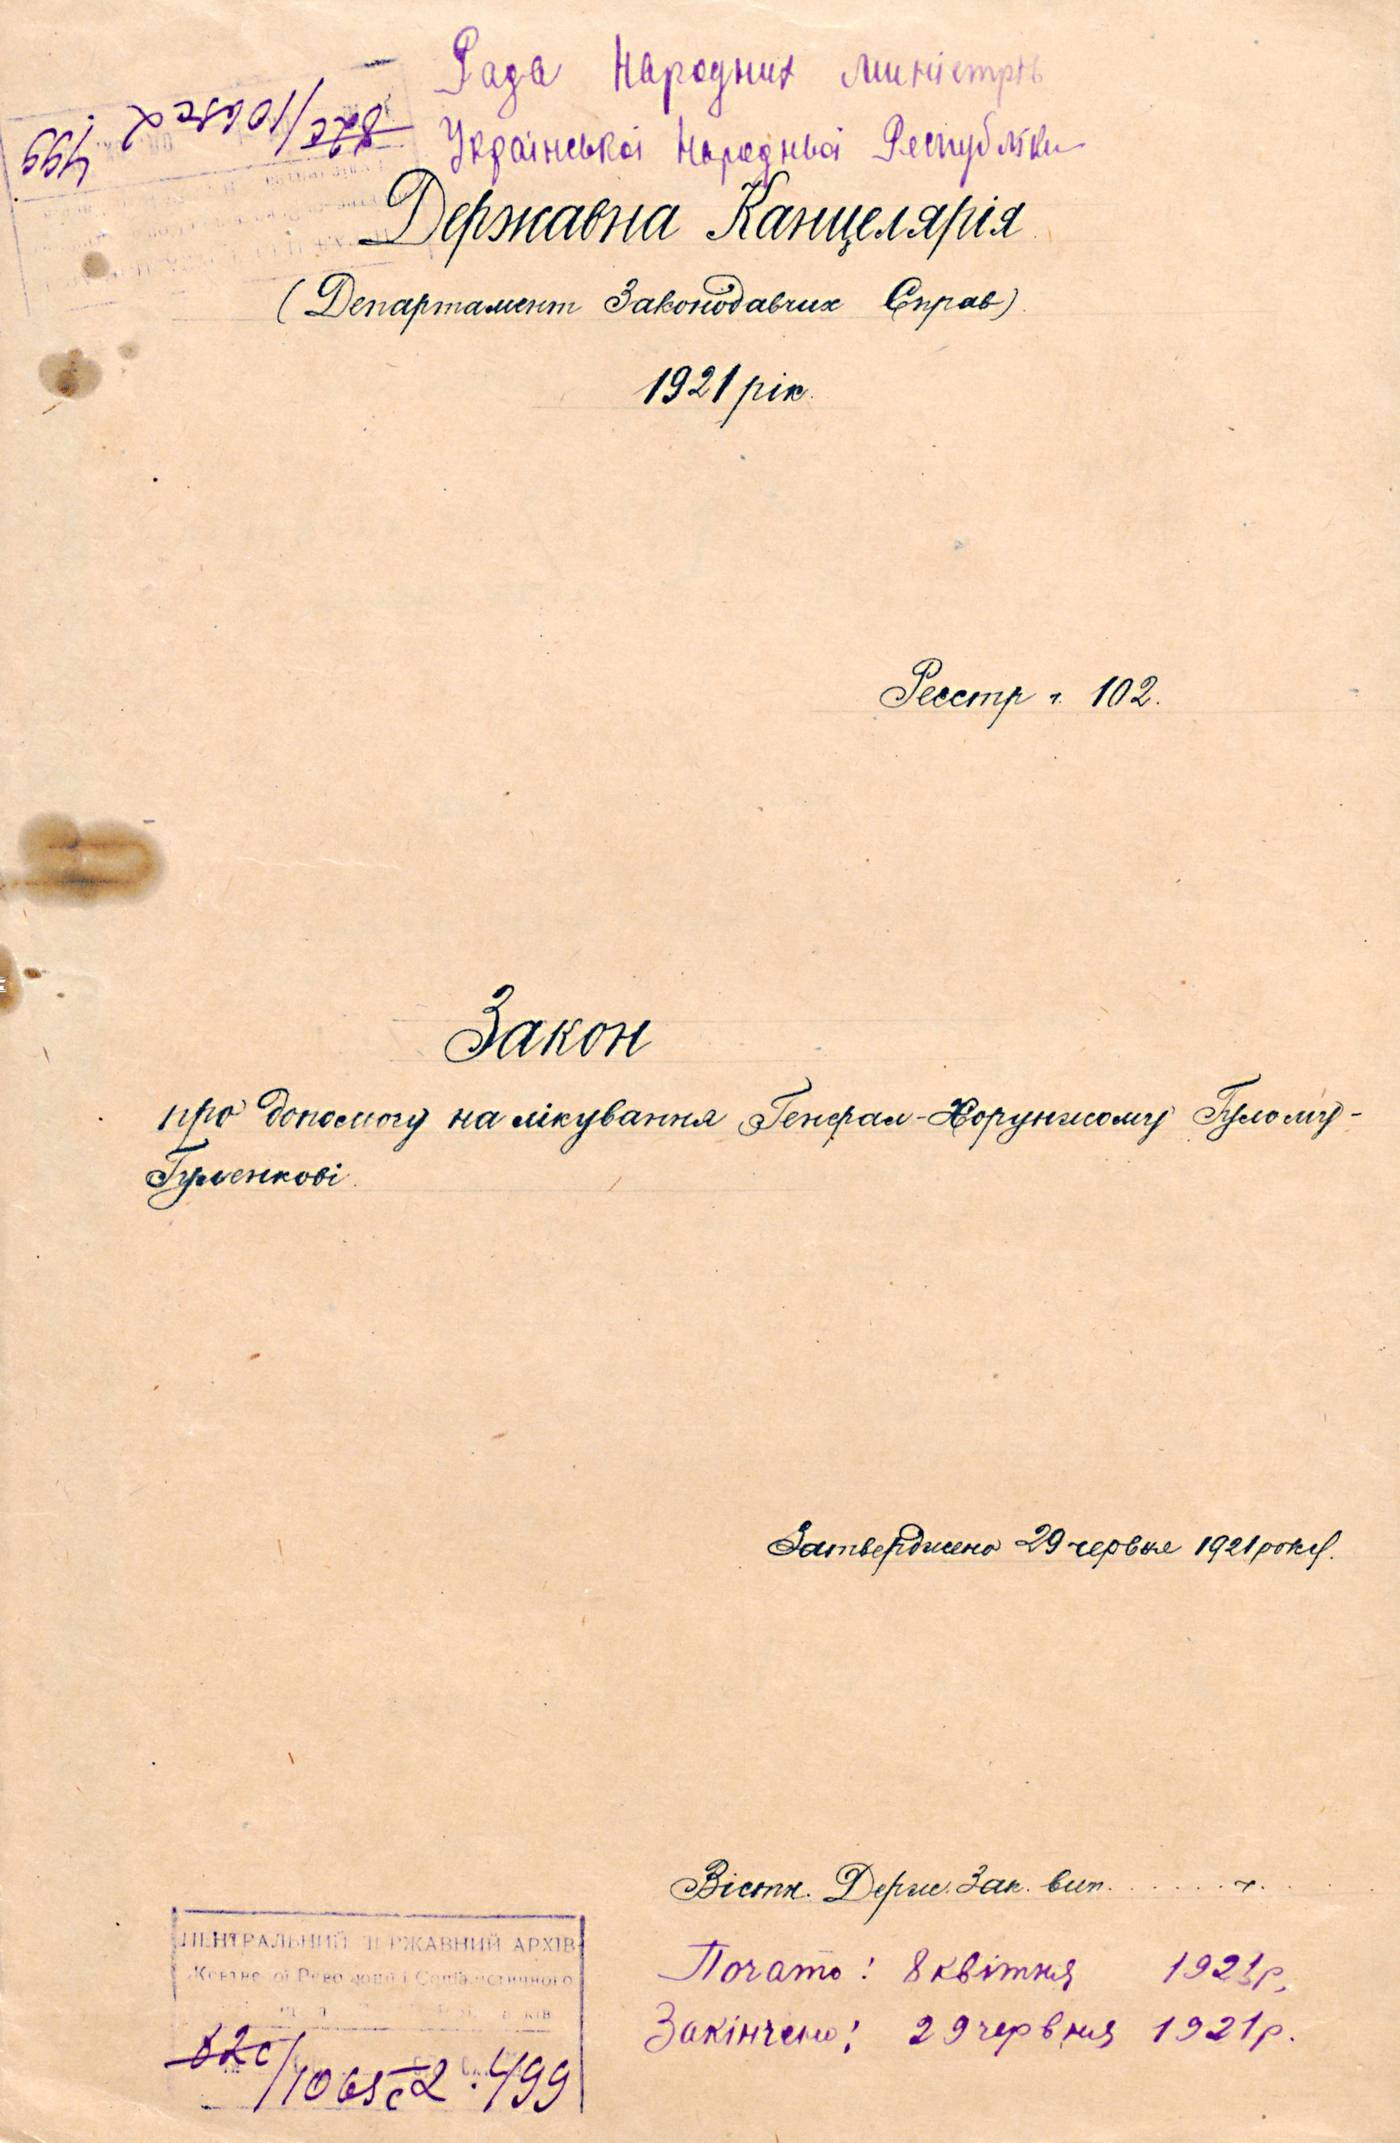 Рада Народних Міністрів
Української Народньої Республіки
82с/1065с 2 499
Державна Канцелярія
(Департамент Законодавчих Справ).
1921 рік.
Реєстр ч. 102.
Закон
про допомогу на лікування Генерал-Хорунжому Гулому-
Гуленкові.
Затверджено 29 червня 1921 року.
Вістн. Держ. Зак. вип. . . . . . ч. . .
Почато: 8 квітня 1921 р.
Закінчено: 29 червня 1921 р.
ЦЕНТРАЛЬНИЙ ДЕРЖАВНИЙ АРХІВ
Жовтневої Революції і Соціалістичного
82с/1065с 2 499